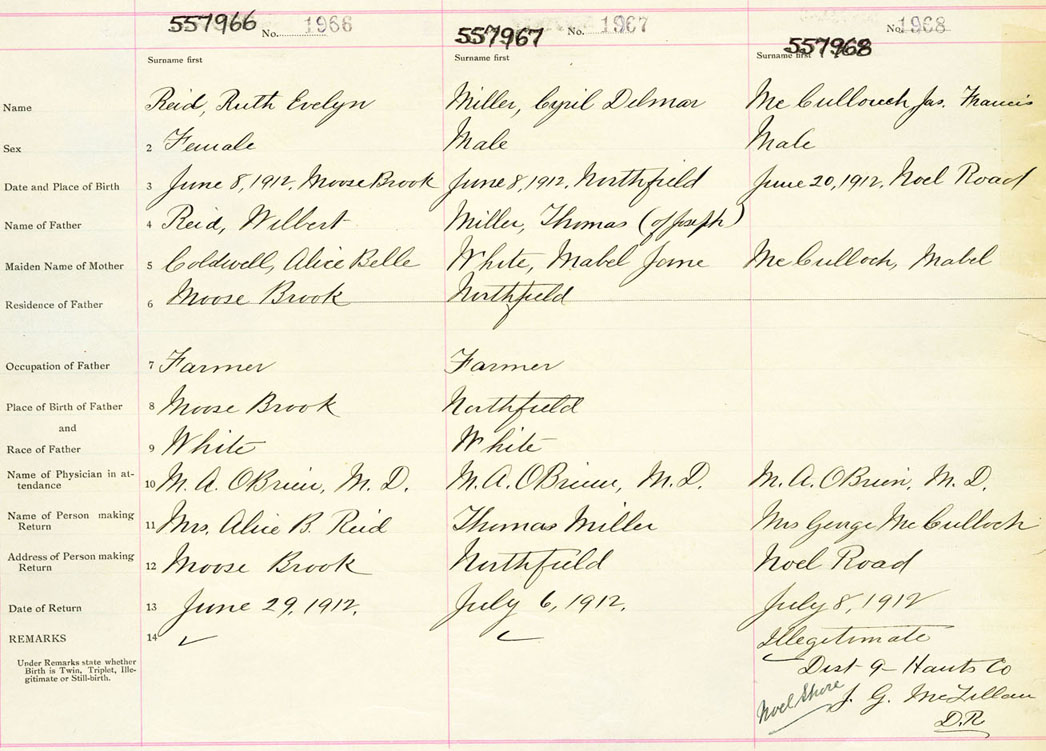 557966 No. 1966 557967 No. 1967 557968 No. 1968
Surname first Surname first Surname first
Name Reid, Ruth Evelyn Miller, Cyril Delmar McCullouch, Jas. Francis
Sex 2 Female Male Male
Date and Place of Birth 3 June 8, 1912, Moose Brook June 8, 1912, Northfield June 20, 1912, Noel Road
Name of Father 4 Reid, Wilbert Miller, Thomas (of Joseph)
Maiden Name of Mother 5 Coldwell, Alice Belle White, Mabel Jane McCulloch, Mabel
Residence of Father 6 Moose Brook Northfield
Occupation of Father 7 Farmer Farmer
Place of Birth of Father 8 Moose Brook Northfield
and
Race of Father 9 White White
Name of Physician in at-
tendance 10 M. A. O'Brien, M. D. M. A. O'Brien, M. D. M. A. O'Brien, M. D.
Name of Person making
Return 11 Mrs. Alice B. Reid Thomas Miller Mrs George McCulloch
Address of Person making
Return 12 Moose Brook Northfield Noel Road
Date of Return 13 June 29, 1912. July 6, 1912. July 8, 1912
REMARKS 14 ✓ ✓ Illegitimate
Under Remarks state whether
Birth is Twin, Triplet, Ille-
gitimate or Still-birth.
Dist 9 - Hants Co
Noel Shore J. G. McLellan
D.R.